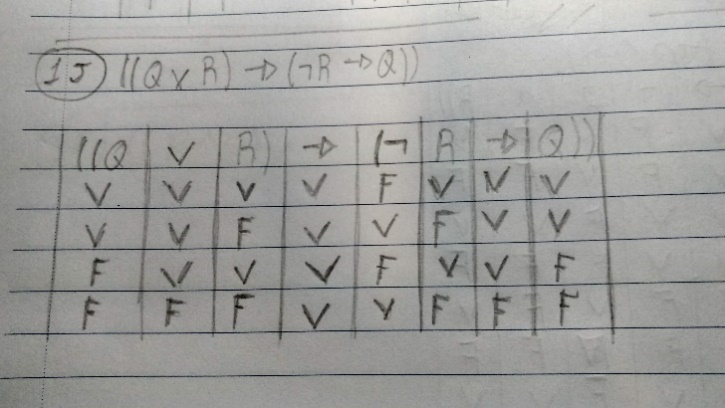 15 ((Q ∨ R) → (¬R → Q))
((Q ∨ R) → (¬ R → Q))
V V V V F V V V
V V F V V F V V
F V V V F V V F
F F F V V F F F